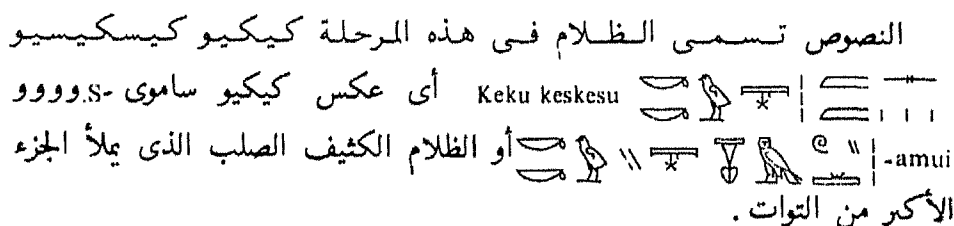 النصوص تسمى الظلام فى هذه المرحلة كيكيو كيسكيسيو
Keku keskesu أى عكس كيكيو ساموى s-وووو
-amui أو الظلام الكثيف الصلب الذى يملأ الجزء
الأكبر من التوات .